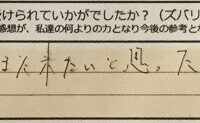 受けられていかがでしたか？（ズバリ
感想が、私達の何よりの力となり今後の参考と
また来たいと思った